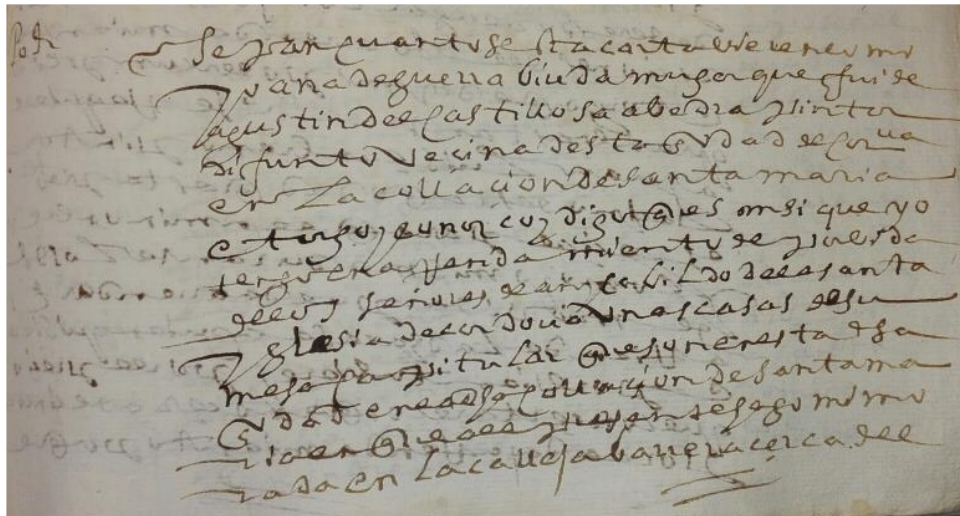 Podr
Sepan quantos esta carta vieren como
Juana de guerra biuda muger que fui de
agustin del castillo saabedra pintor
difunto vecina desta ciudad de cordoua
en la collacion de santa maria
otorgo y conozco y digo que es ansi que yo
tengo en arrendamiento de por vida
de los señores dean y cabildo de la santa
yglesia de cordoua unas casas de su
mesa capitular que son en esta dha
ciudad en la dha collacion de santa ma
ria en que al presente hago mi mo
rada en la calleja barrera cerca del